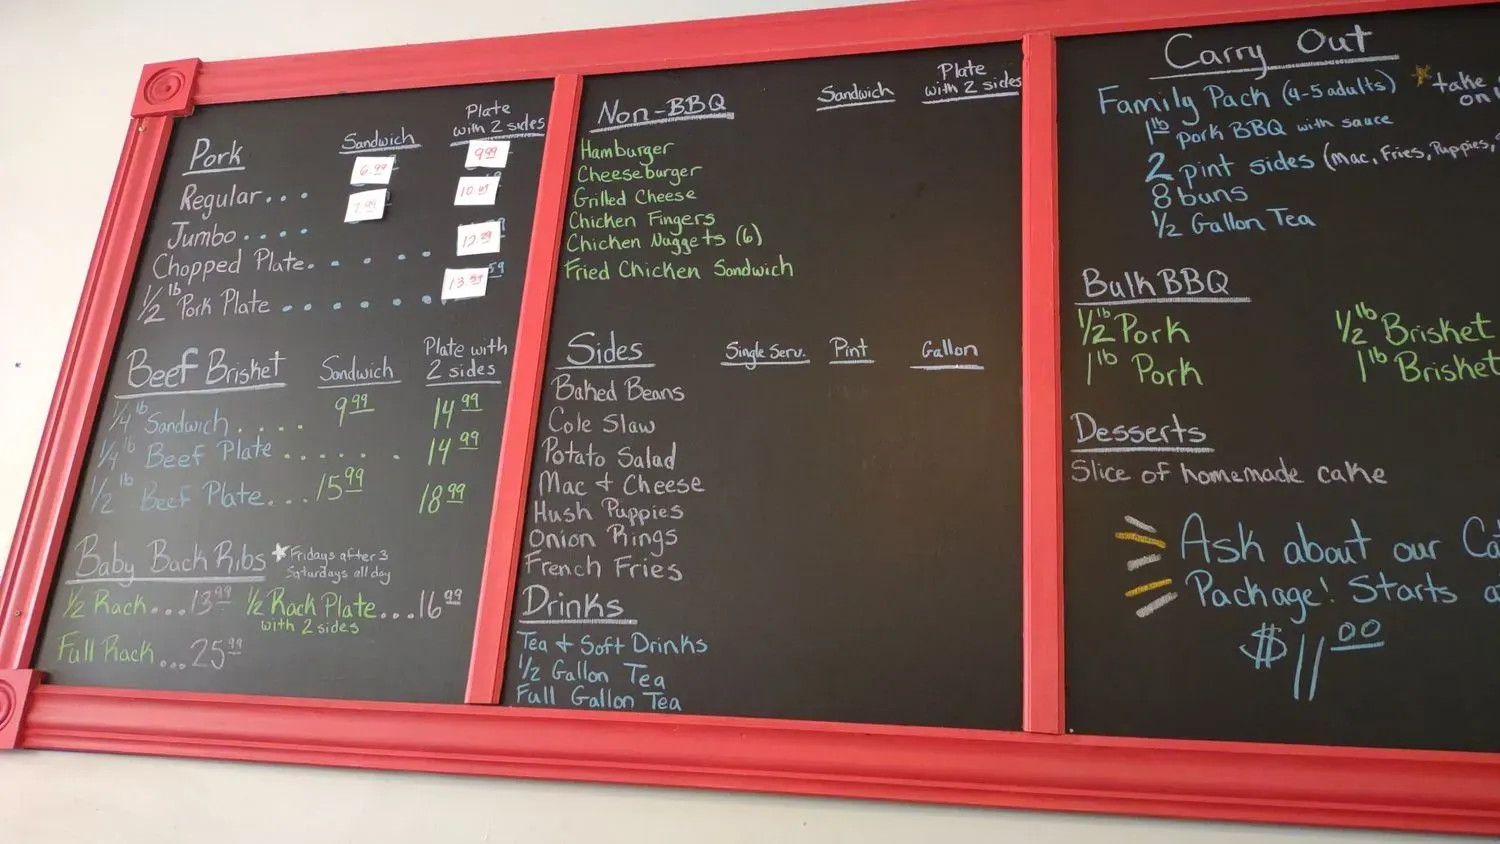 Pork Sandwich Plate with 2 sides
Regular... 6.99 9.99
Jumbo.... 7.99
Chopped Plate. . . . . 12.99
1/2 lb Pork Plate . . . . . . 13.59
Beef Brisket Sandwich Plate with 2 sides
1/4 lb Sandwich. . . . . 9.99 14.99
1/4 lb Beef Plate . . . . . . 14.99
1/2 lb Beef Plate... 15.99 18.99
Baby Back Ribs ★ Fridays after 3
Saturdays all day
1/2 Rack... 13.99 1/2 Rack Plate... 16.99
with 2 sides
Full Rack... 25.99
Non-BBQ Sandwich Plate with 2 sides
Hamburger
Cheeseburger
Grilled Cheese
Chicken Fingers
Chicken Nuggets (6)
Fried Chicken Sandwich
Sides Single Serv. Pint Gallon
Baked Beans
Cole Slaw
Potato Salad
Mac + Cheese
Hush Puppies
Onion Rings
French Fries
Drinks
Tea + Soft Drinks
1/2 Gallon Tea
Full Gallon Tea
Carry Out
Family Pack (4-5 adults) ★ take
on
1 lb pork BBQ with sauce
2 pint sides (Mac, Fries, Puppies,
8 buns
1/2 Gallon Tea
Bulk BBQ
1/2 lb Pork 1/2 lb Brisket
1 lb Pork 1 lb Brisket
Desserts
Slice of homemade cake
Ask about our
Package! Starts
$11.00